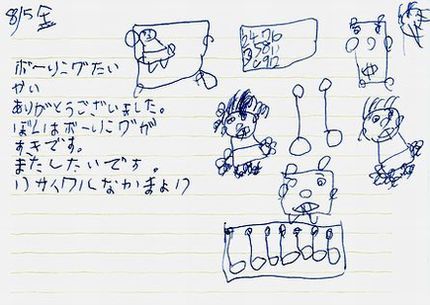 8/5 金
ボーリングたい
かい
ありがとうございました。
ぼくはボーリングが
すきです。
またしたいです。
リサイクルなかまより